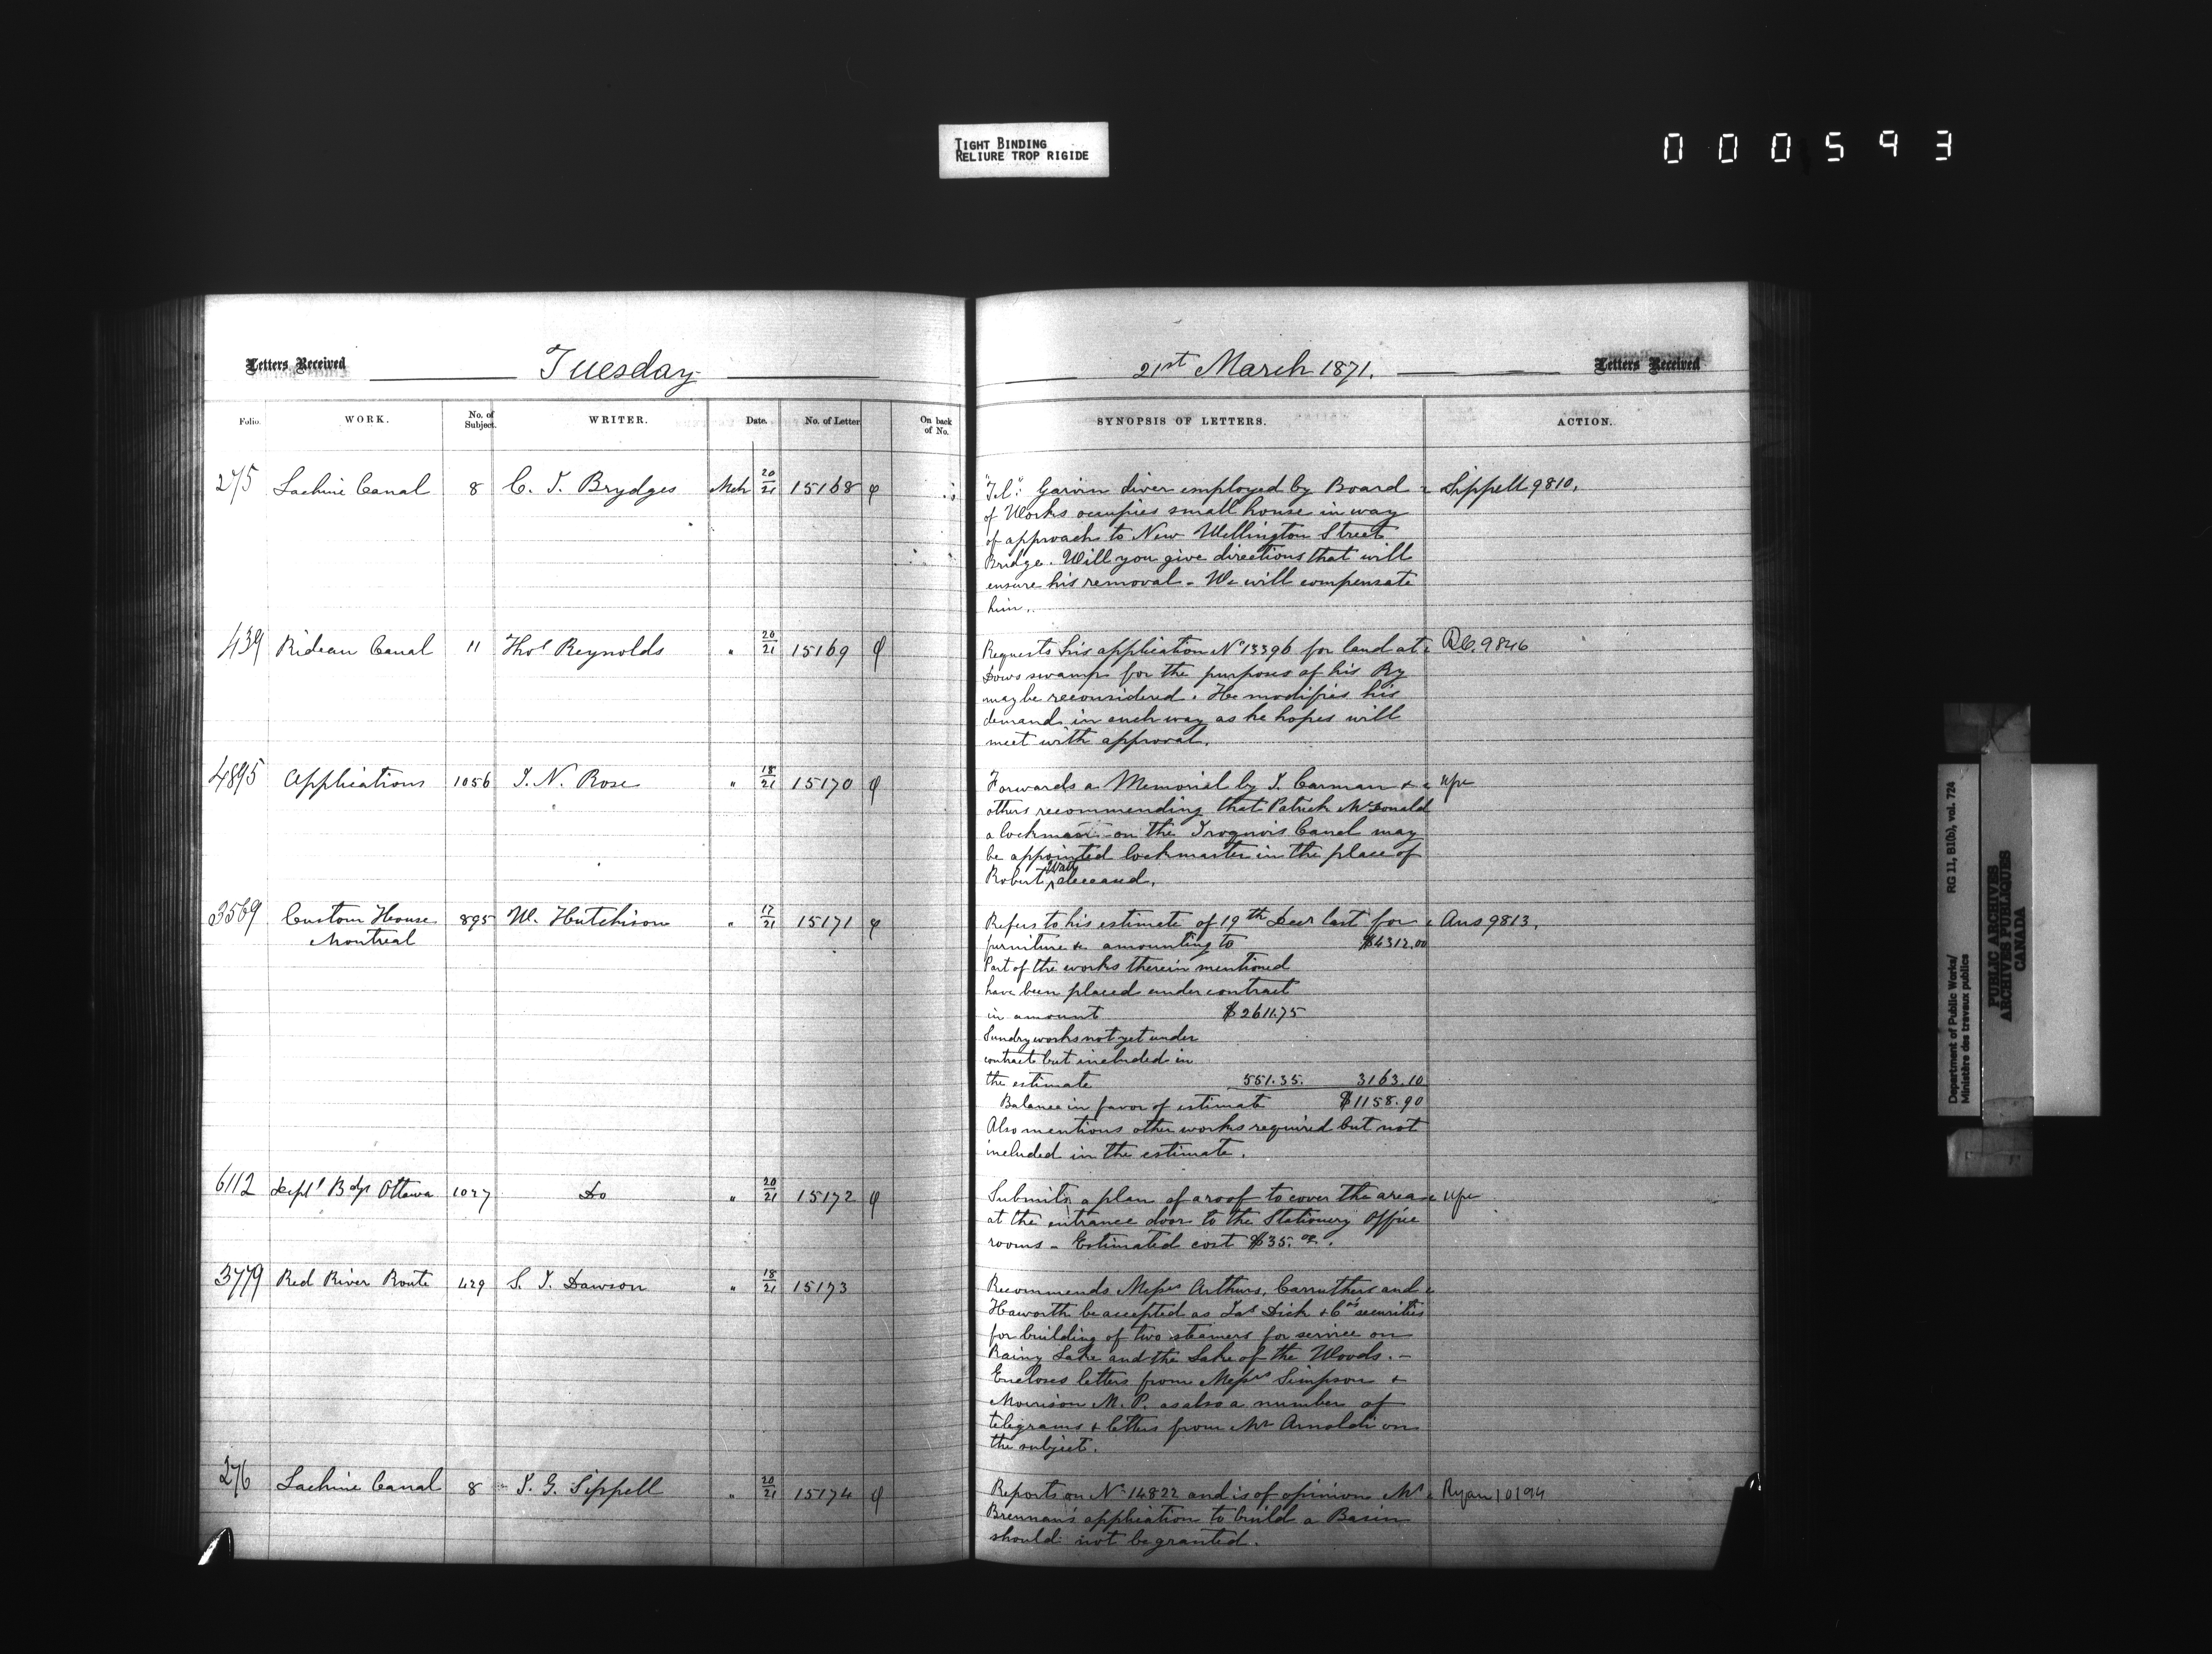 TIGHT BINDING
RELIURE TROP RIGIDE
000593
Letters Received
Tuesday
21st March 1871.
Letters Received
Folio. WORK. No. of Subject. WRITER. Date. No. of Letter On back of No. SYNOPSIS OF LETTERS. ACTION.
275 Lachine Canal 8 C. J. Brydges Mch 20/21 15168 φ "Tel": Garvin diver employed by Board Sippell 9810.
of Works occupies small house in way
of approach to New Wellington Street
Bridge. Will you give directions that will
ensure his removal - We will compensate
him.
439 Rideau Canal 11 Thos Reynolds " 20/21 15169 φ Requests his application No 13396 for land at R.C. 9846
Dows swamp for the purposes of his Ry
may be reconsidered. He modifies his
demand in such way as he hopes will
meet with approval.
4895 Applications 1056 J. N. Rose " 18/21 15170 φ Forwards a Memorial by J. Carman &
others recommending that Patrick McDonald
a lockman on the Iroquois Canal may
be appointed lockmaster in the place of
Robert deceased.
3569 Custom House 895 W. Hutchison " 17/21 15171 φ Refers to his estimate of 19th Decr last for Ans 9813.
Montreal furniture &c amounting to $4312.00
Part of the works therein mentioned
have been placed under contract
in amount $2611.75
Sundry works not yet under
contract but included in
the estimate 551.35. 3163.10
Balance in favor of estimate $1158.90
Also mentions other works required but not
included in the estimate.
6112 Deptl Bdgs Ottawa 1027 Do " 20/21 15172 φ Submits a plan of a roof to cover the area
at the entrance door to the Stationery Office
rooms - Estimated cost $35.00.
3779 Red River Route 429 S. J. Dawson " 18/21 15173 Recommends Messrs Arthurs, Carruthers and
Haworth be accepted as Jas Dick & Co's securities
for building of two steamers for service on
Rainy Lake and the Lake of the Woods. -
Encloses letters from Messrs Simpson &
Morrison M. P. as also a number of
telegrams & letters from Mr Arnoldi on
the subject.
276 Lachine Canal 8 J. G. Sippell " 20/21 15174 φ Reports on No 14822 and is of opinion Mr Ryan 10194
Brennan's application to build a Basin
should not be granted.
Department of Public Works/ RG 11, B1(b), vol. 724
Ministère des travaux publics
PUBLIC ARCHIVES
ARCHIVES PUBLIQUES
CANADA